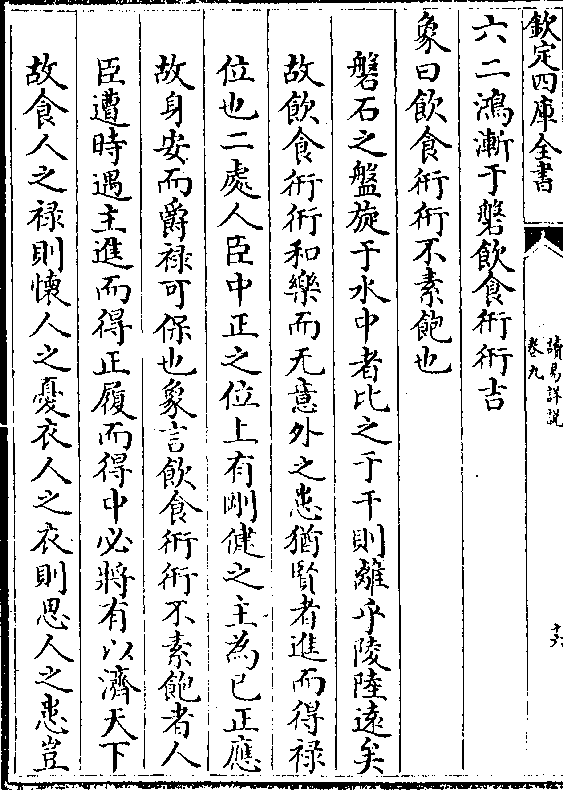 欽定四庫全書
讀易詳説
卷九
十六
六二鴻漸于磐飲食衎衎吉
象曰飲食衎衎不素飽也
磐石之盤旋于水中者比之于干則離乎陵陸遠矣
故飲食衎衎和樂而无意外之患猶賢者進而得禄
位也二處人臣中正之位上有剛健之主為已正應
故身安而爵禄可保也象言飲食衎衎不素飽者人
臣遭時遇主進而得正履而得中必將有以濟天下
故食人之禄則懐人之憂衣人之衣則思人之患豈